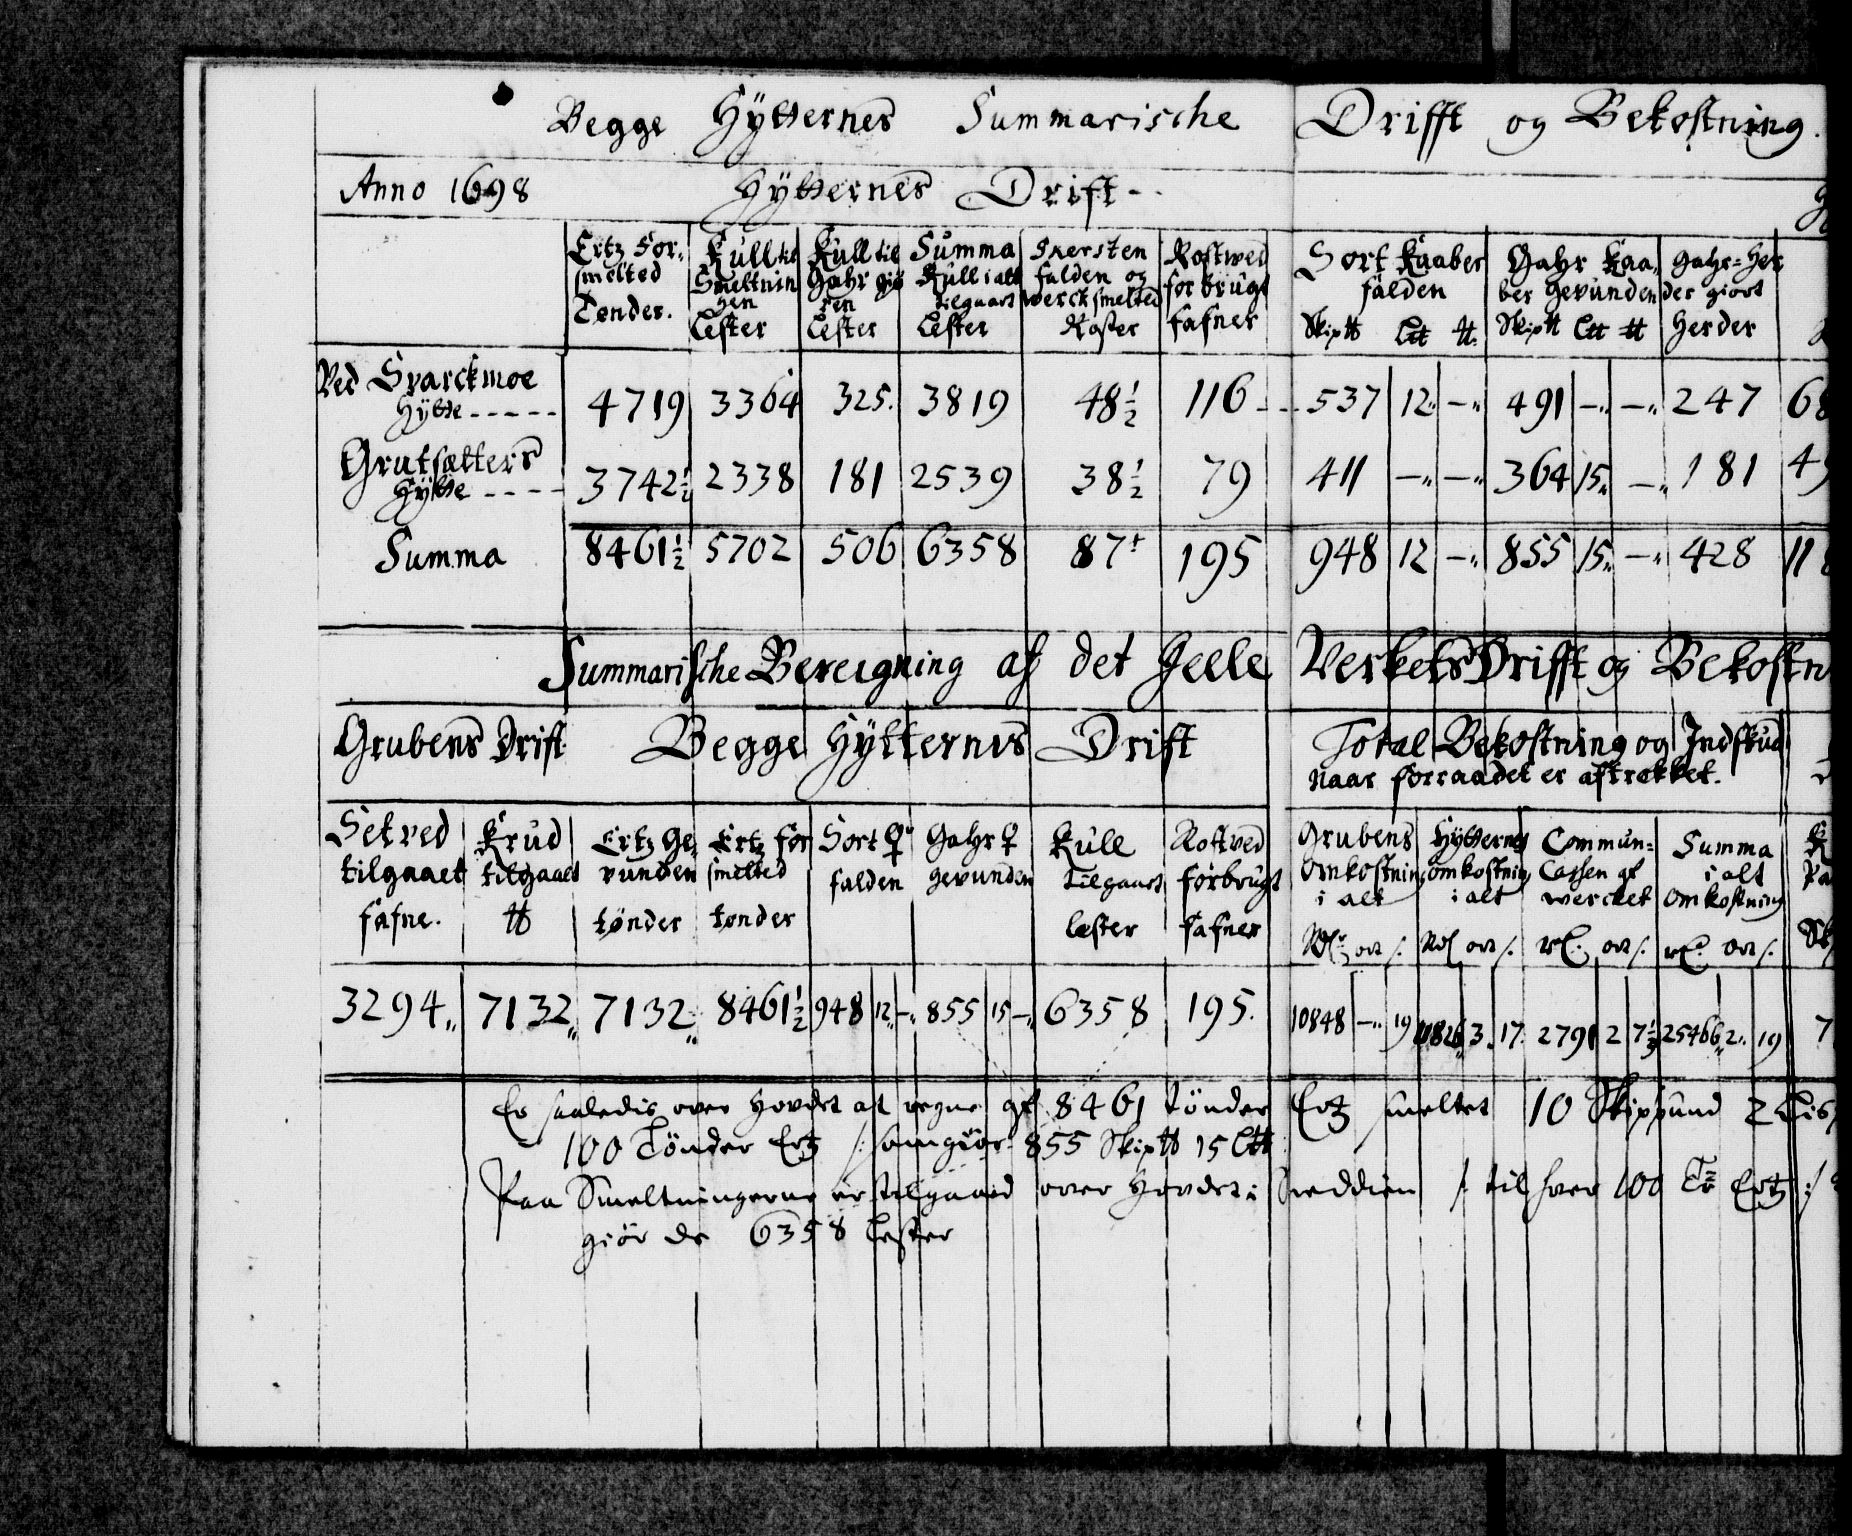 Begge Hÿtternes Summarische Drifft og Bekostning.
Anno 1698 Hÿtternes Drift
Ertz For- smelted Tønder.
Kull til Smeltnin gen Lester
Kull til Gahr giø ren Lester
Summa Kull i alt tilgaaet Lester
Skersten falden og werck smelted Roster
Rostwed forbrugt fafner
Sort Kaaber falden Skip℔ L℔ ℔.
Gahr Kaa, ber gevunden Skip℔ L℔ ℔
Gahr-Her der giort Herder
Ved Svarckmoe
Hÿtte ----- 4719 3364 325. 3819 48½ 116 -- 537 12" -" 491 -" -" 247 68
Grutsætters
Hÿtte ---- 3742½ 2338 181 2539 38½ 79 411 -" -" 364 15" -" 181 49
Summa 8461½ 5702 506 6358 87 195 948 12 -" 855 15" -" 428 118
Summarische Bereigning af det Heele Verkets Drifft og Bekostn
Grubens Drift Begge Hÿtternes Drift Total Bekostning og Indskud
Naar forraadet er aftrekket.
Setved tilgaaet fafne.
Krud tilgaaet ℔
Ertz Ge, vunden tønder
Ertz for smelted tønder
Sort ♀ falden
Gahr ♀ gevunden
Kull Tilgaaet læster
Rostved forbrugt fafner
Grubens Omkostning i alt Rdr ort s.
Hytternes omkostning i alt Rdl ort s.
Commun- Cassen af wercket rd. ort s.
Summa i alt omkostning rd. ort s.
3294" 7132" 7132" 8461½ 948 12" -" 855 15 -" 6358 195. 10848 -" 19 11826" 3. 17. 2791 2 7½ 25466" 2" 19 7
Er saaledis over Hovdet at regne af 8461 tønder Ertz smeltet 10 Skippund 2 Lis
100 Tønder Ertz /: som giør 855 Skip℔ 15 L℔
Paa Smeltningerne er tilgaaed over Hovdet i Sneddien /: til hver 100 Tr Ertz :/
giør de 6358 Lester